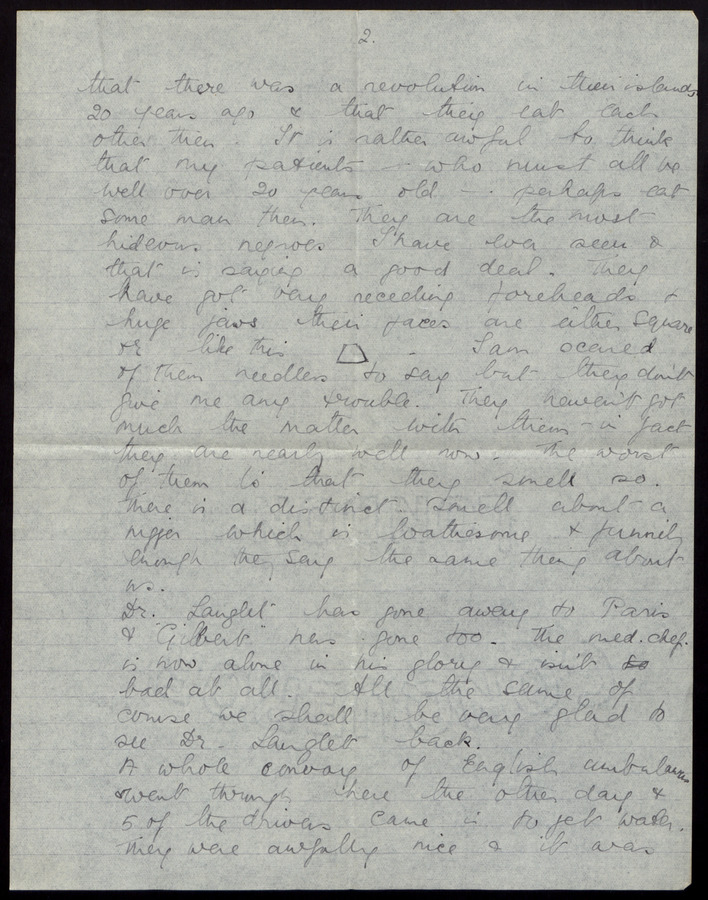 2.
that there was a revolution in their islands
20 years ago & that they eat each
other then. It is rather awful to think
that my patients - who must all be
well over 20 years old - perhaps eat
some man then. They are the most
hideous negroes I have ever seen &
that is saying a good deal. They
have got very receeding foreheads &
huge jaws their faces are either square
or like this - I am scared
of them needless to say but they don't
give me any trouble. They haven't got
much the matter with them - in fact
they are nearly well now. The worst
of them is that they smell so.
There is a distinct smell about a
nigger which is loathesome & funnily
enough they say the same thing about
us.
Dr. Langlet has gone away to Paris
& "Gilbert" has gone too. The med. chef.
is now alone in his glory & isn't so
bad at all. All the same of
course we shall be very glad to
see Dr. Langlet back.
A whole convoy of English ambulances
went through here the other day &
5 of the drivers came in to get water.
They were awfully nice & it was